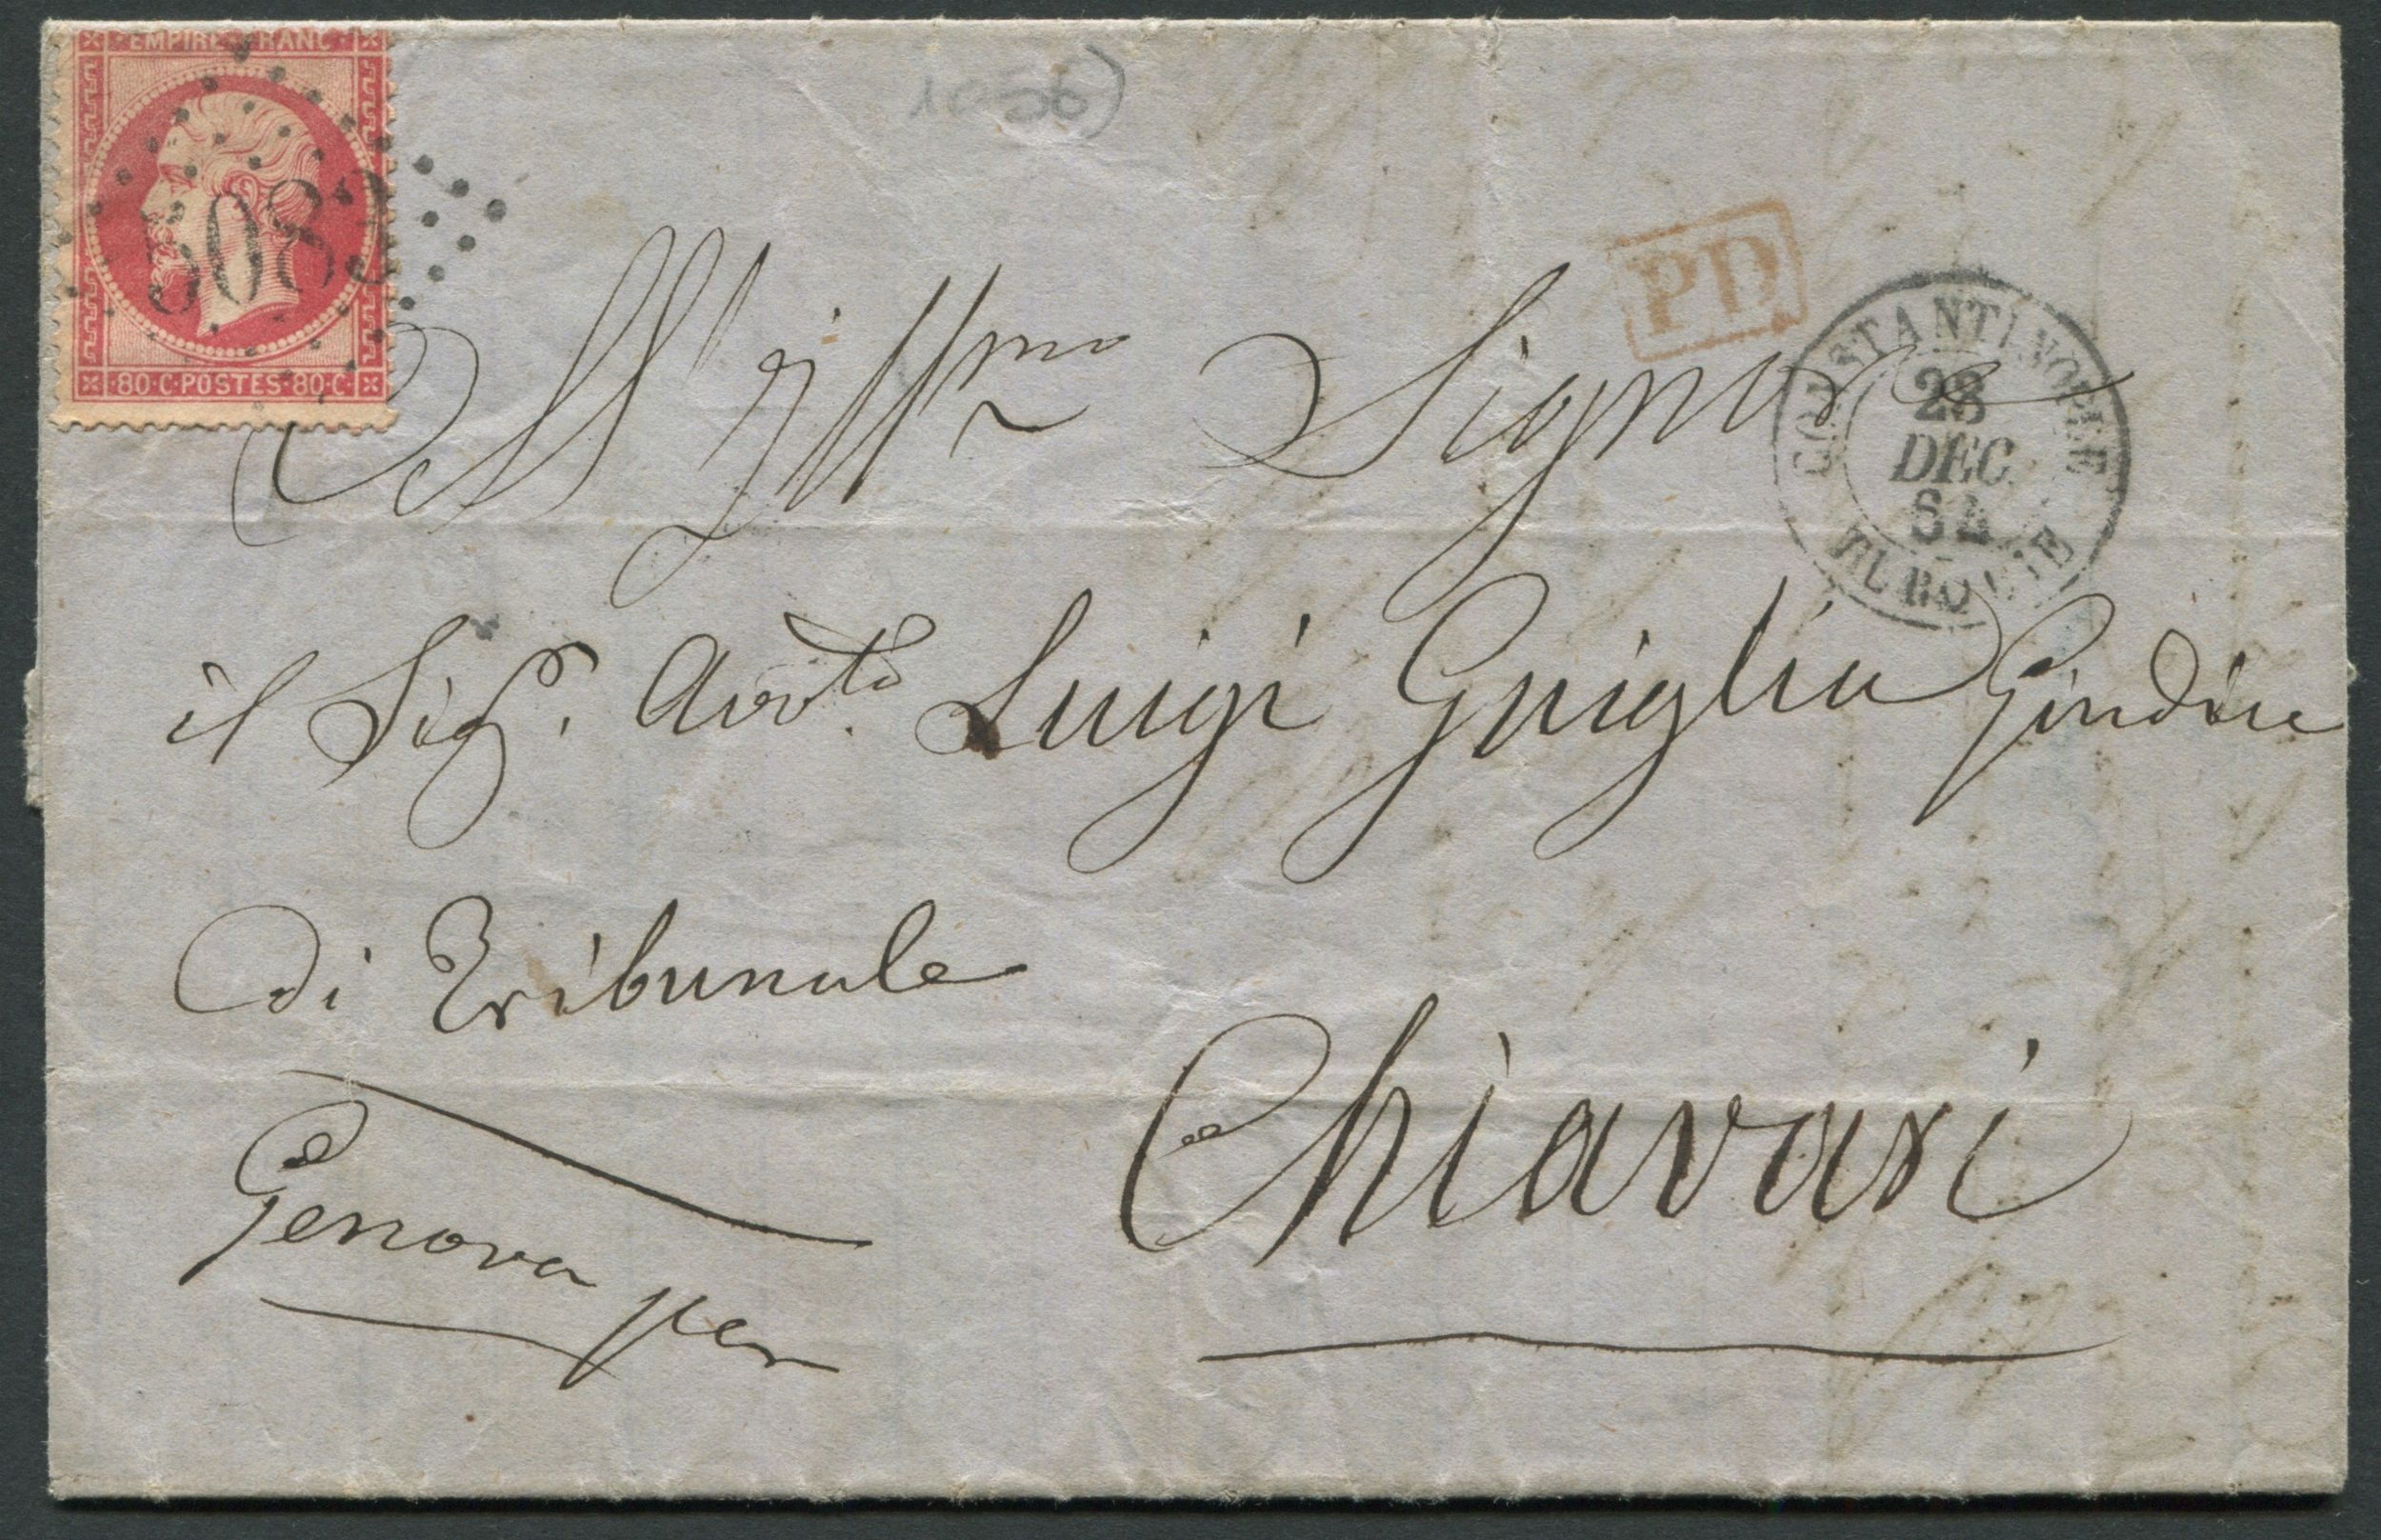 EMPIRE FRANC
5083
80·C·POSTES·80·C
1056)
PD
CONSTANTINOPLE
28
DEC
64
TURQUIE
All'Illmo Signore
il Sigr. Avvto. Luigi Guiglia Giudice
di Tribunale
Genova per
Chiavari